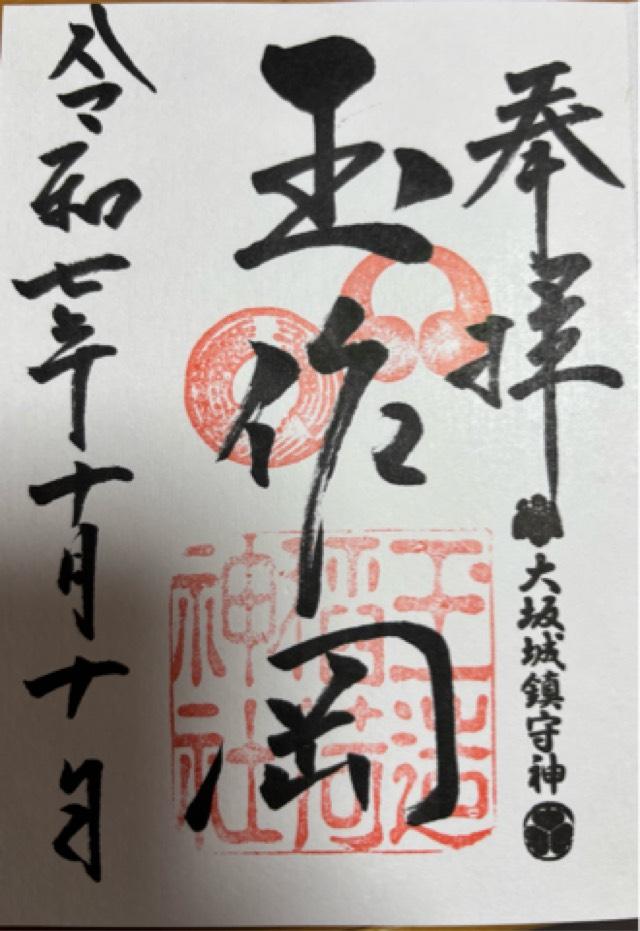 奉拝
大坂城鎮守神
玉作岡
玉造
稲荷
神社
令和七年十月十日